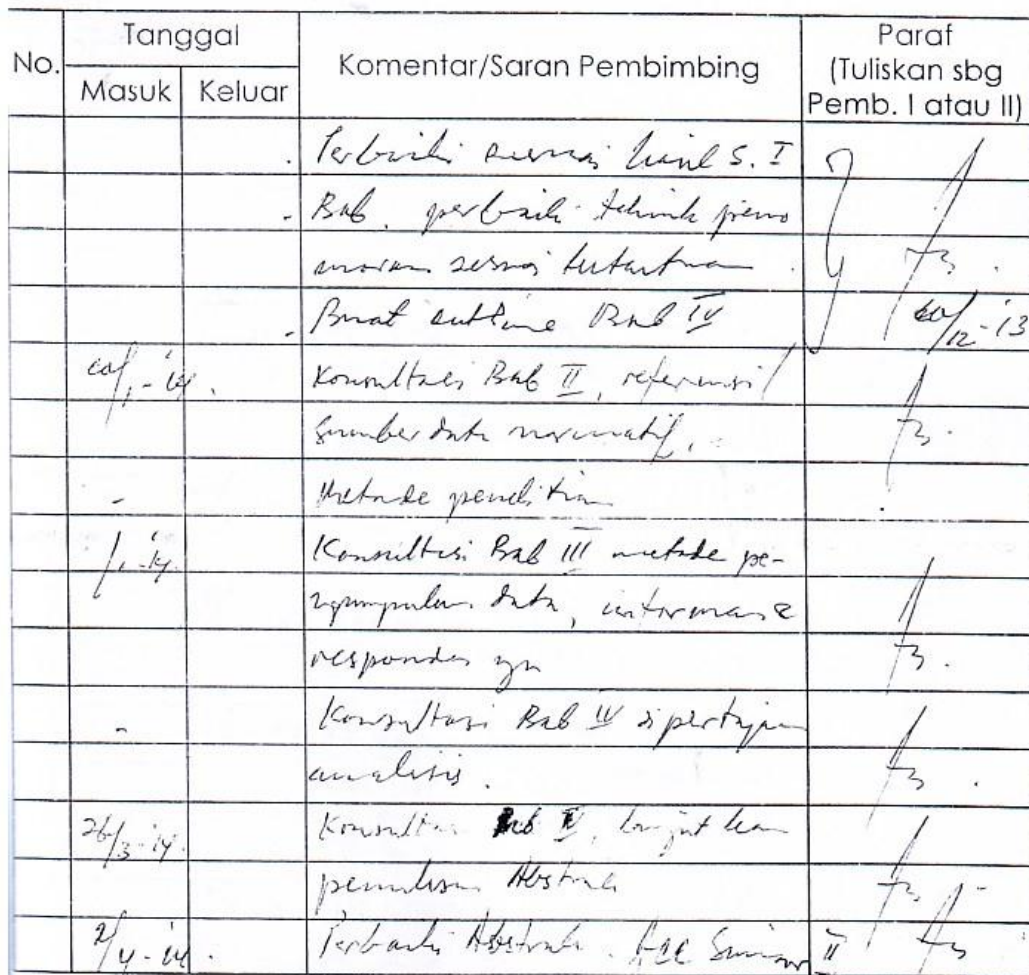 No.
Tanggal
Masuk
Keluar
Komentar/Saran Pembimbing
Paraf
(Tuliskan sbg
Pemb. I atau II)
Perbaiki sesuai hasil S. I
Bab. perbaiki teknik peno
moran sesuai
Buat outline Bab IV
/12-'13
Konsultasi Bab II, referensi /
Sumber data normatif,
Metode penelitian
/1-'14.
Konsultasi Bab III metode pe-
ngumpulan data, informan &
responden yn
Konsultasi Bab IV dipertajam
analisis.
26/3-'14.
Konsultasi Bab V, lanjut kan
penulisan Abstrak
2/4-'14.
Perbaiki Abstrak. Acc Seminar II